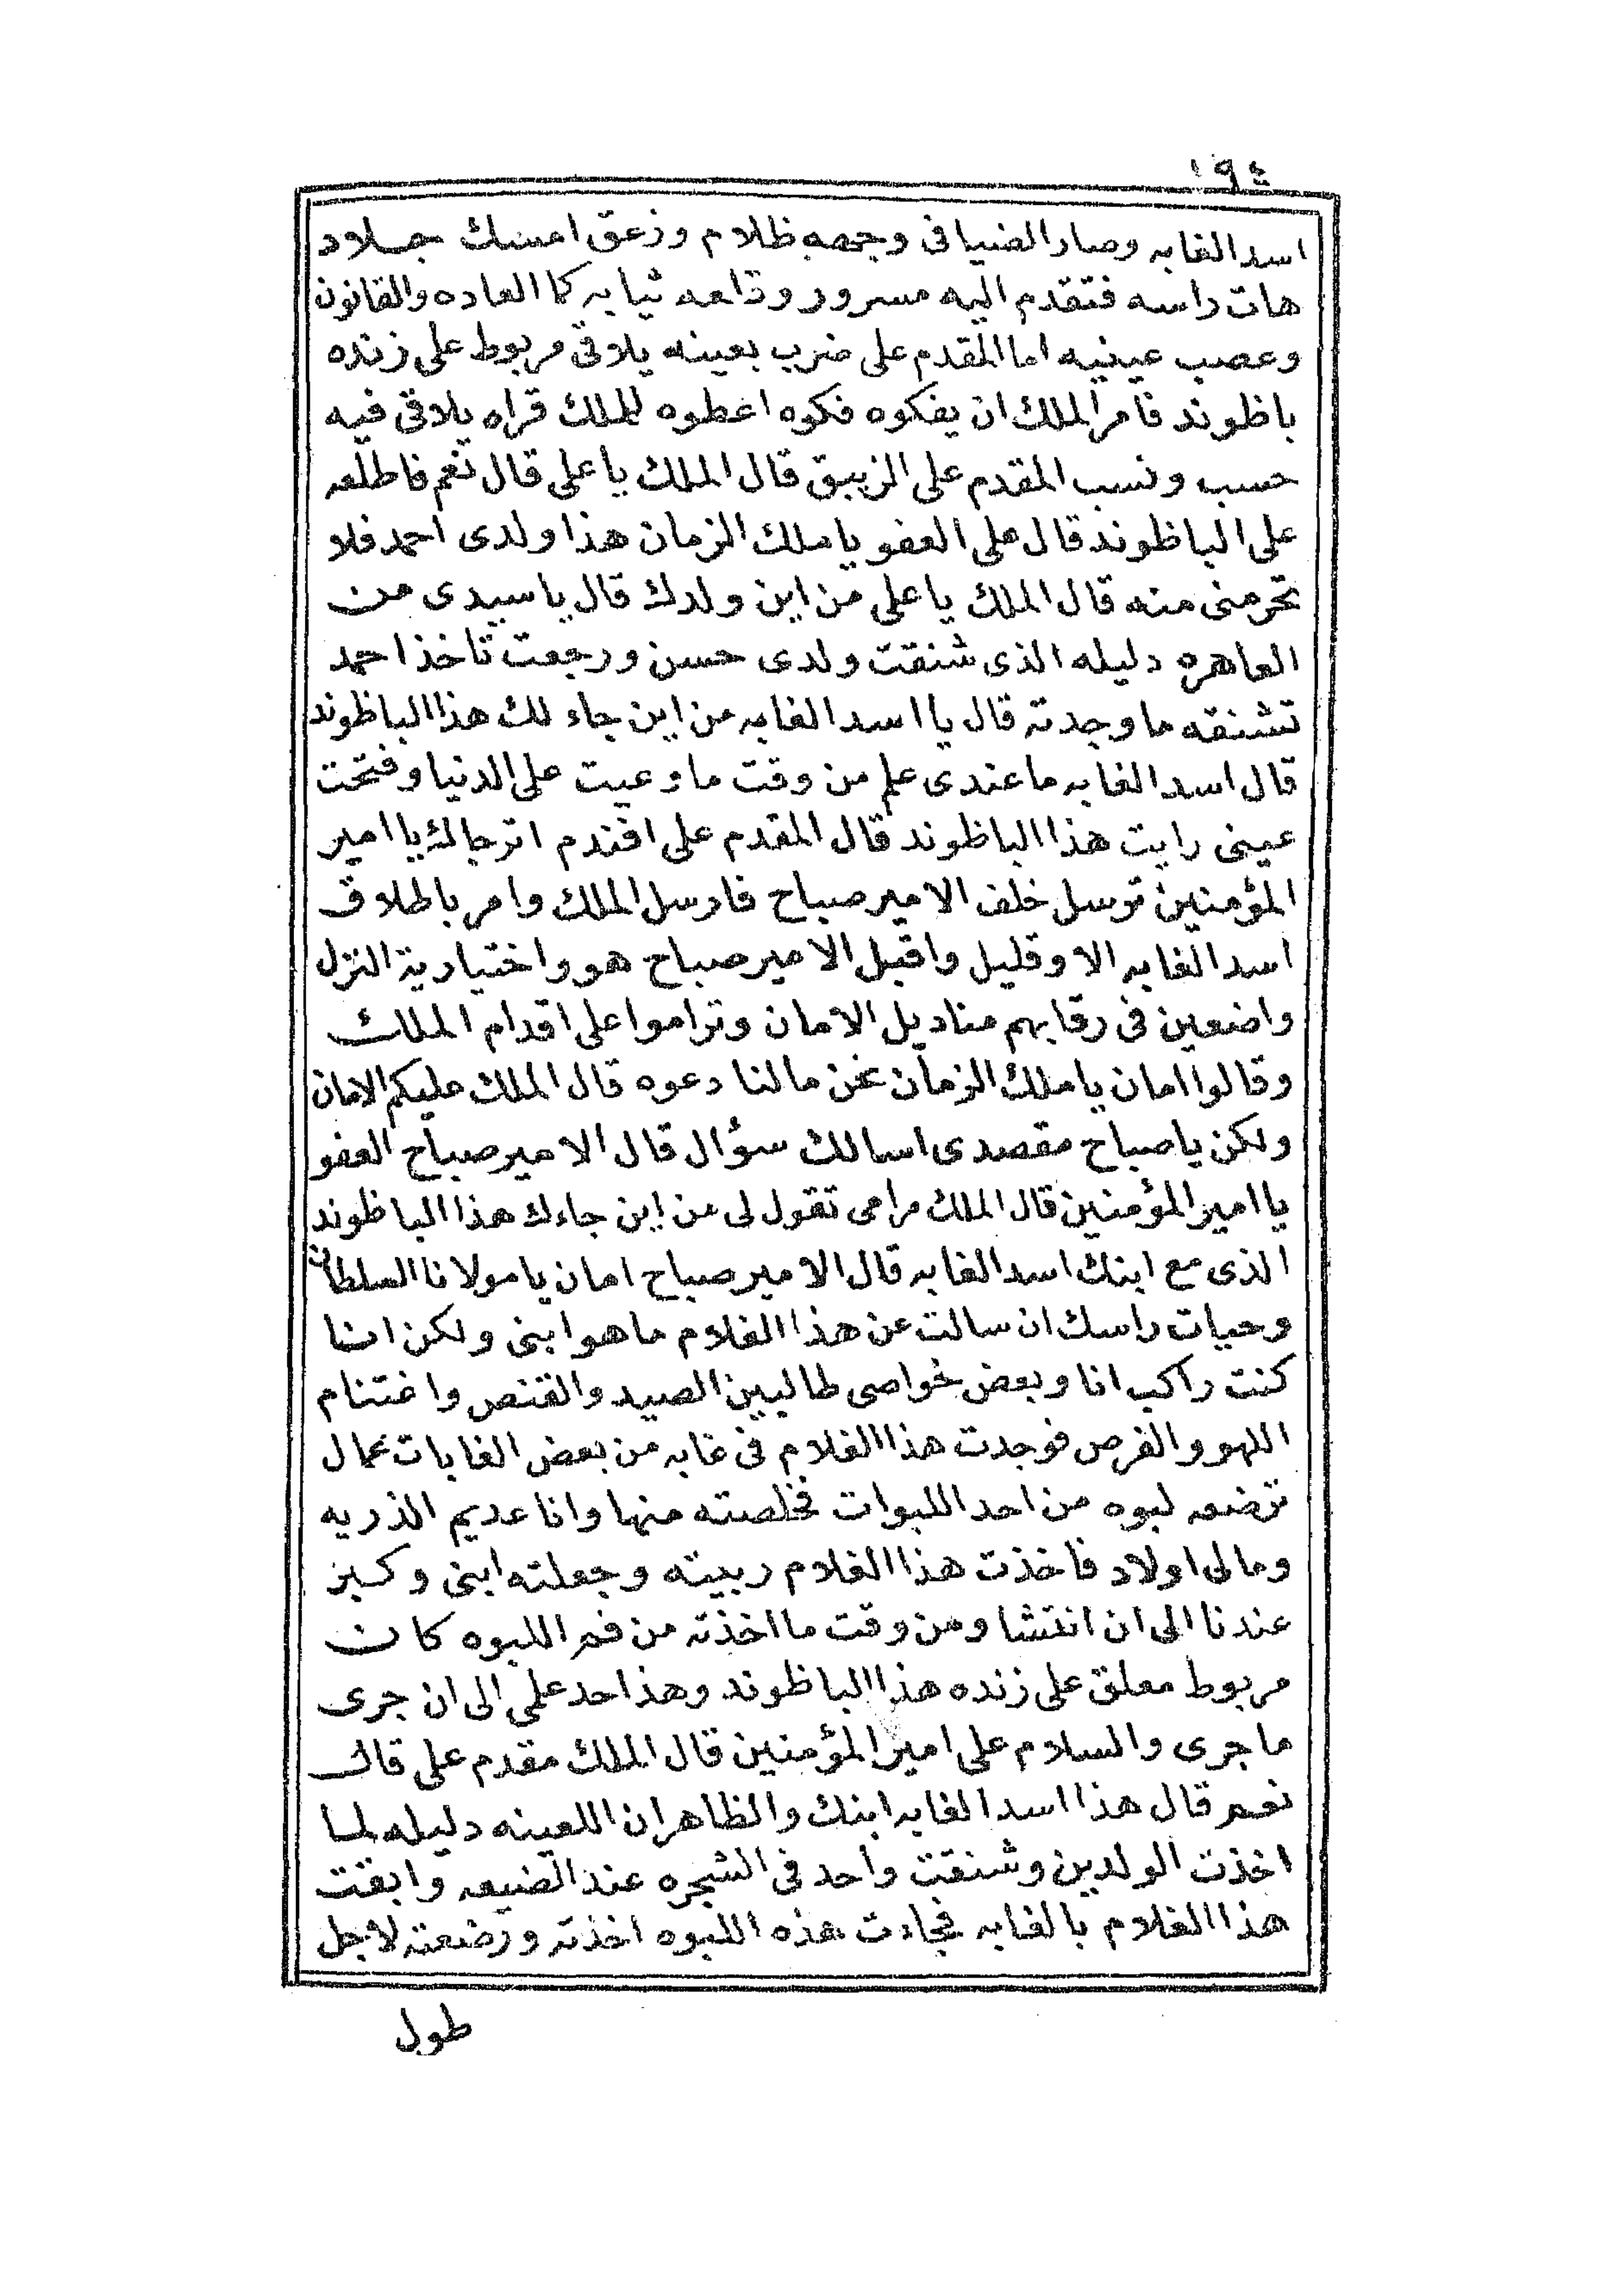 ١٩٤
اسد الغابه وصار الضيا فى وجهه ظلام وزعق امسك جلاد
هات راسه فتقدم اليه مسرور وقلعه ثيابه كما العاده والقانون
وعصب عينيه اما المقدم على ضرب بعينه يلاقى مربوط على زنده
باظوند فامر الملك ان يفكوه فكوه اعطوه للملك قراه يلاقى فيه
حسب ونسب المقدم على الزيبق قال الملك يا على قال نعم فاطلعه
على الباظوند قال على العفو يا ملك الزمان هذا ولدى احمد فلا
تحرمنى منه قال الملك يا على من اين ولدك قال يا سيدى من
العاهره دليله الذى شنقت ولدى حسن ورجعت تاخذ احمد
تشنقه ما وجدته قال يا اسد الغابه من اين جاء لك هذا الباظوند
قال اسد الغابه ما عندى علم من وقت ما وعيت على الدنيا وفتحت
عينى رايت هذا الباظوند قال المقدم على افندم اترجالك يا امير
المؤمنين توسل خلف الامير صباح فارسل الملك وامر باطلاق
اسد الغابه الا وقليل واقبل الامير صباح هو واختيارية النزل
واضعين فى رقابهم مناديل الامان وتراموا على اقدام الملك
وقالوا امان يا ملك الزمان نحن مالنا دعوه قال الملك عليكم الامان
ولكن يا صباح مقصدى اسالك سؤال قال الامير صباح العفو
يا امير المؤمنين قال الملك مرامى تقول لى من اين جاءك هذا الباظوند
الذى مع ابنك اسد الغابه قال الامير صباح امان يا مولانا السلطان
وحيات راسك ان سالت عن هذا الغلام ما هو ابنى ولكن انا
كنت راكب انا وبعض خواصى طالبين الصيد والقنص واغتنام
اللهو والفرص فوجدت هذا الغلام فى غابه من بعض الغابات عمال
ترضعه لبوه من احد اللبوات فخلصته منها وانا عديم الذريه
ومالى اولاد فاخذت هذا الغلام ربيته وجعلته ابنى وكبر
عندنا الى ان انتشا ومن وقت ما اخذته من فم اللبوه كان
مربوط معلق على زنده هذا الباظوند وهذا حد علمى الى ان جرى
ما جرى والسلام على امير المؤمنين قال الملك مقدم على قال
نعم قال هذا اسد الغابه ابنك والظاهر ان اللعينه دليله لما
اخذت الولدين وشنقت واحد فى الشجره عند الضيعه وابقت
هذا الغلام بالغابه فجاءت هذه اللبوه اخذته ورضعته لاجل
طول